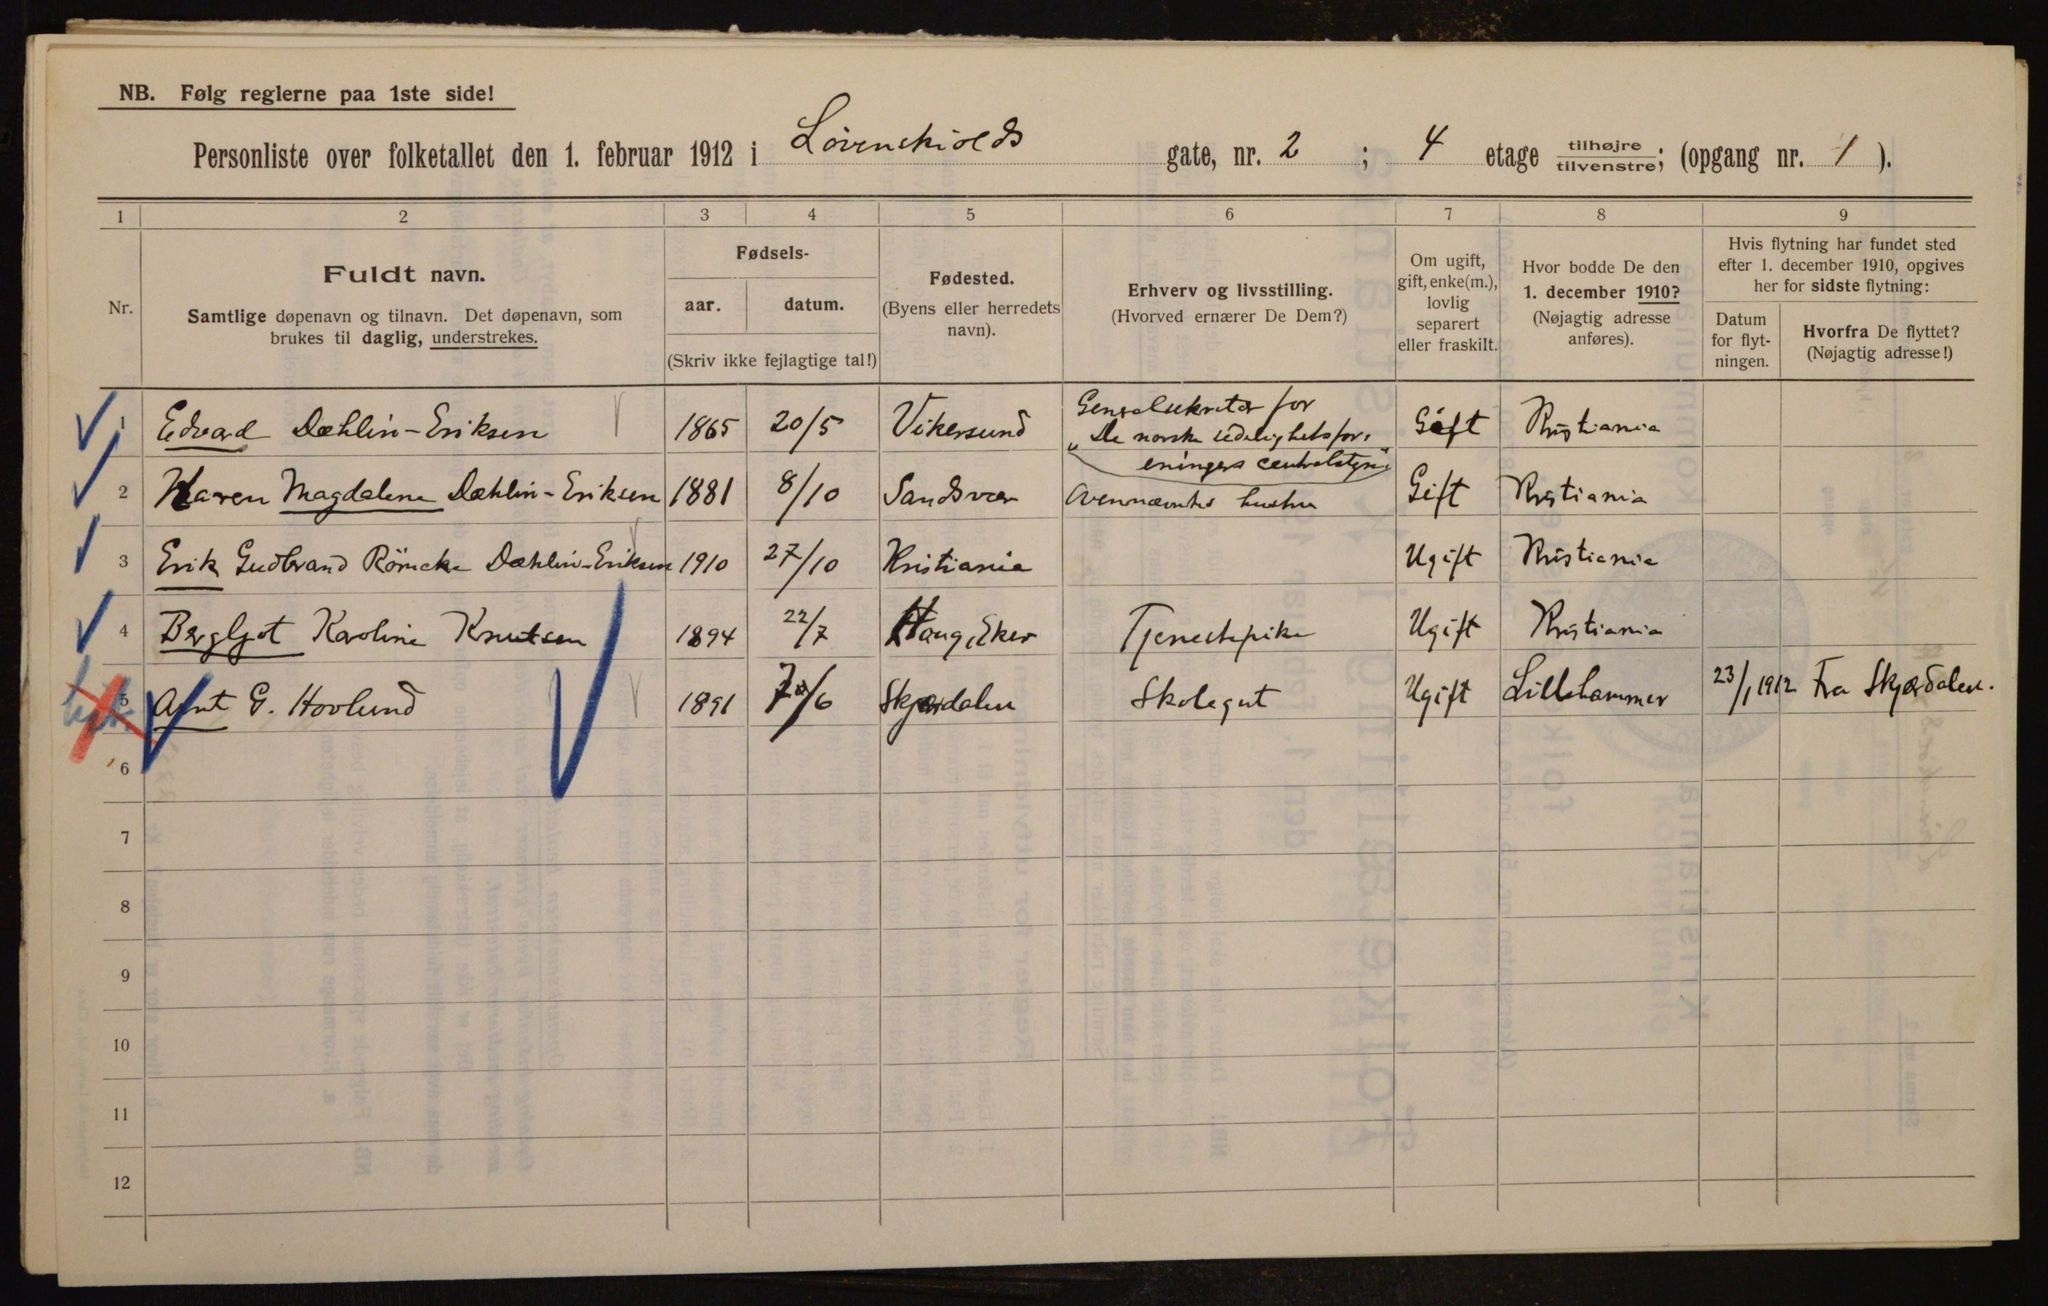 NB. Følg reglerne paa 1ste side!
Personliste over folketallet den 1. februar 1912 i Løvenskiolds gate, nr. 2 ; 4 etage tilhøjre tilvenstre; (opgang nr. 1 ).
1 2 3 4 5 6 7 8 9
Nr.
Fuldt navn.
Samtlige døpenavn og tilnavn. Det døpenavn, som
brukes til daglig, understrekes.
Fødsels-
aar. datum.
(Skriv ikke fejlagtige tal!)
Fødested.
(Byens eller herredets
navn).
Erhverv og livsstilling.
(Hvorved ernærer De Dem?)
Om ugift,
gift, enke(m.),
lovlig
separert
eller fraskilt.
Hvor bodde De den
1. december 1910?
(Nøjagtig adresse
anføres).
Hvis flytning har fundet sted
efter 1. december 1910, opgives
her for sidste flytning:
Datum
for flyt-
ningen.
Hvorfra De flyttet?
(Nøjagtig adresse!)
1 Edvard Dæhlin-Eriksen 1865 20/5 Vikersund Generalsekretær for
"De norske sedelighetsfor-
eningers centralstyre" Gift Kristiania
2 Karen Magdalena Dæhlin-Eriksen 1881 8/10 Sandsvær Ovennævntes hustru Gift Kristiania
3 Erik Gudbrand Römcke Dæhlin-Eriksen 1910 27/10 Kristiania Ugift Kristiania
4 Bergljot Karoline Knutsen 1894 22/7 Haug, Eker Tjenestepike Ugift Kristiania
5 Arnt G. Hovlund 1891 /6 Skjærdalen Skolegut Ugift Lillehammer 23/1 1912 Fra Skjærdalen.
6
7
8
9
10
11
12